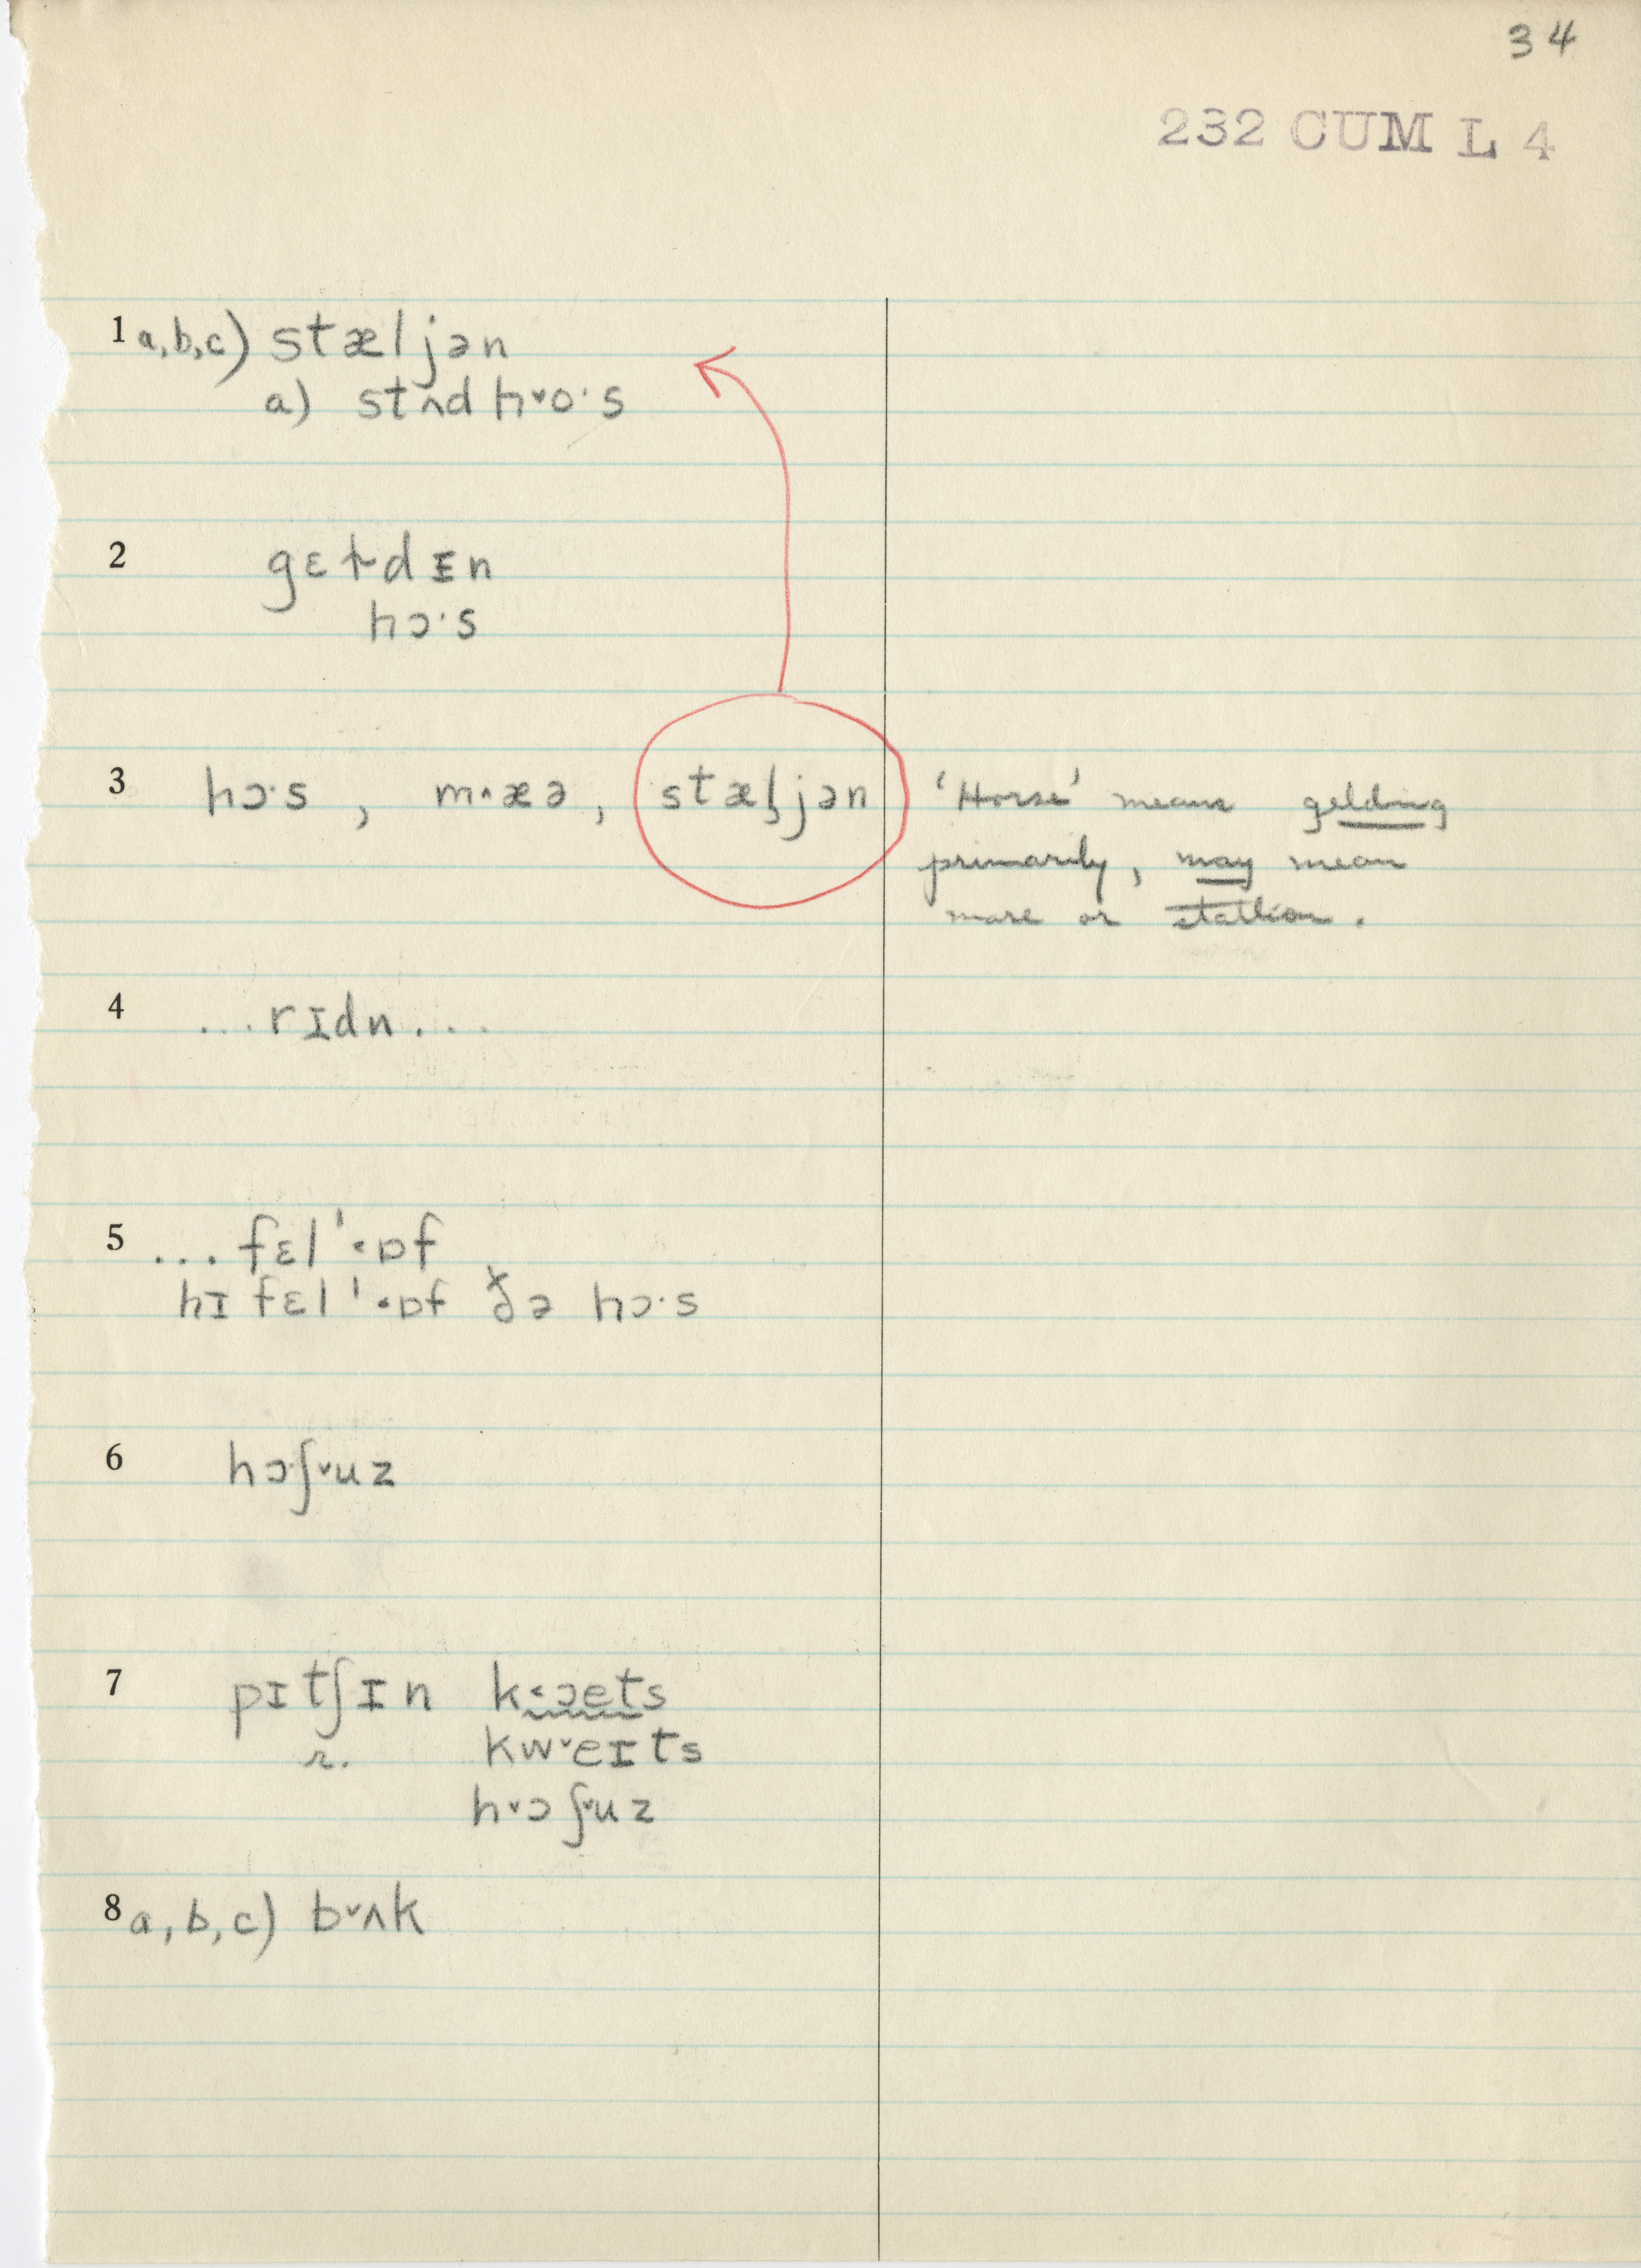 34
232 CUM L 4
1 a, b, c) stæljən
a) stʌd h˅o·s
2 gɛɫdɪn
hɔ·s
3 hɔ·s , m˄æə , stæl̥jən 'Horse' means gelding
primarily, may mean
mare or stallion.
4 ...rɪdn...
5 ... fɛl'˂ɒf
hɪ fɛl'˂ɒf ðə hɔ·s
6 hɔʃ˅uz
7 pɪtʃɪn k˂ɔets
r. kw˅eɪts
h˅ɔʃ˅uz
8 a, b, c) b˅ʌk